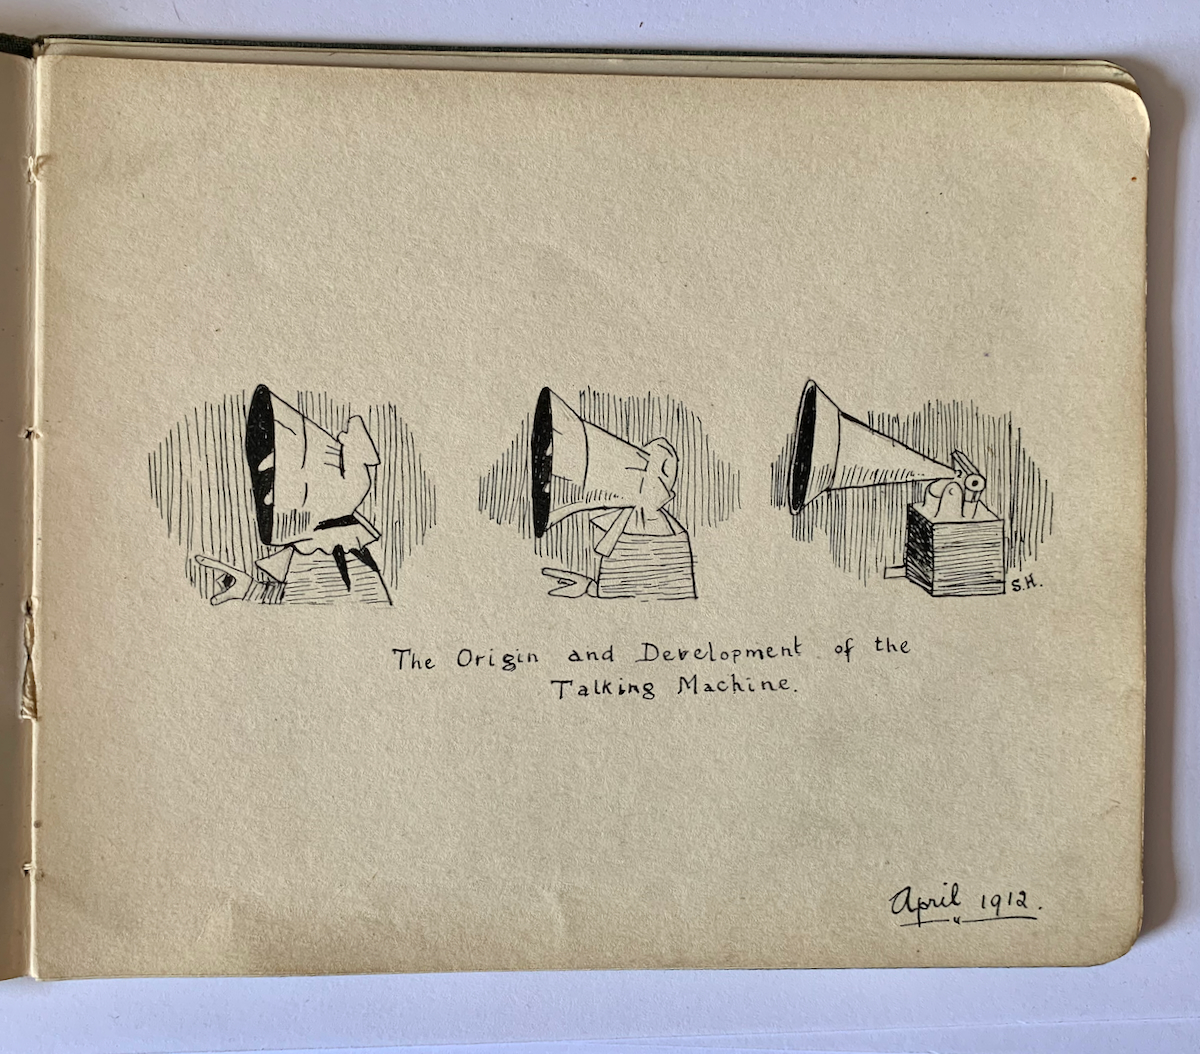 S.H.
The Origin and Development of the
Talking Machine.
April 1912.